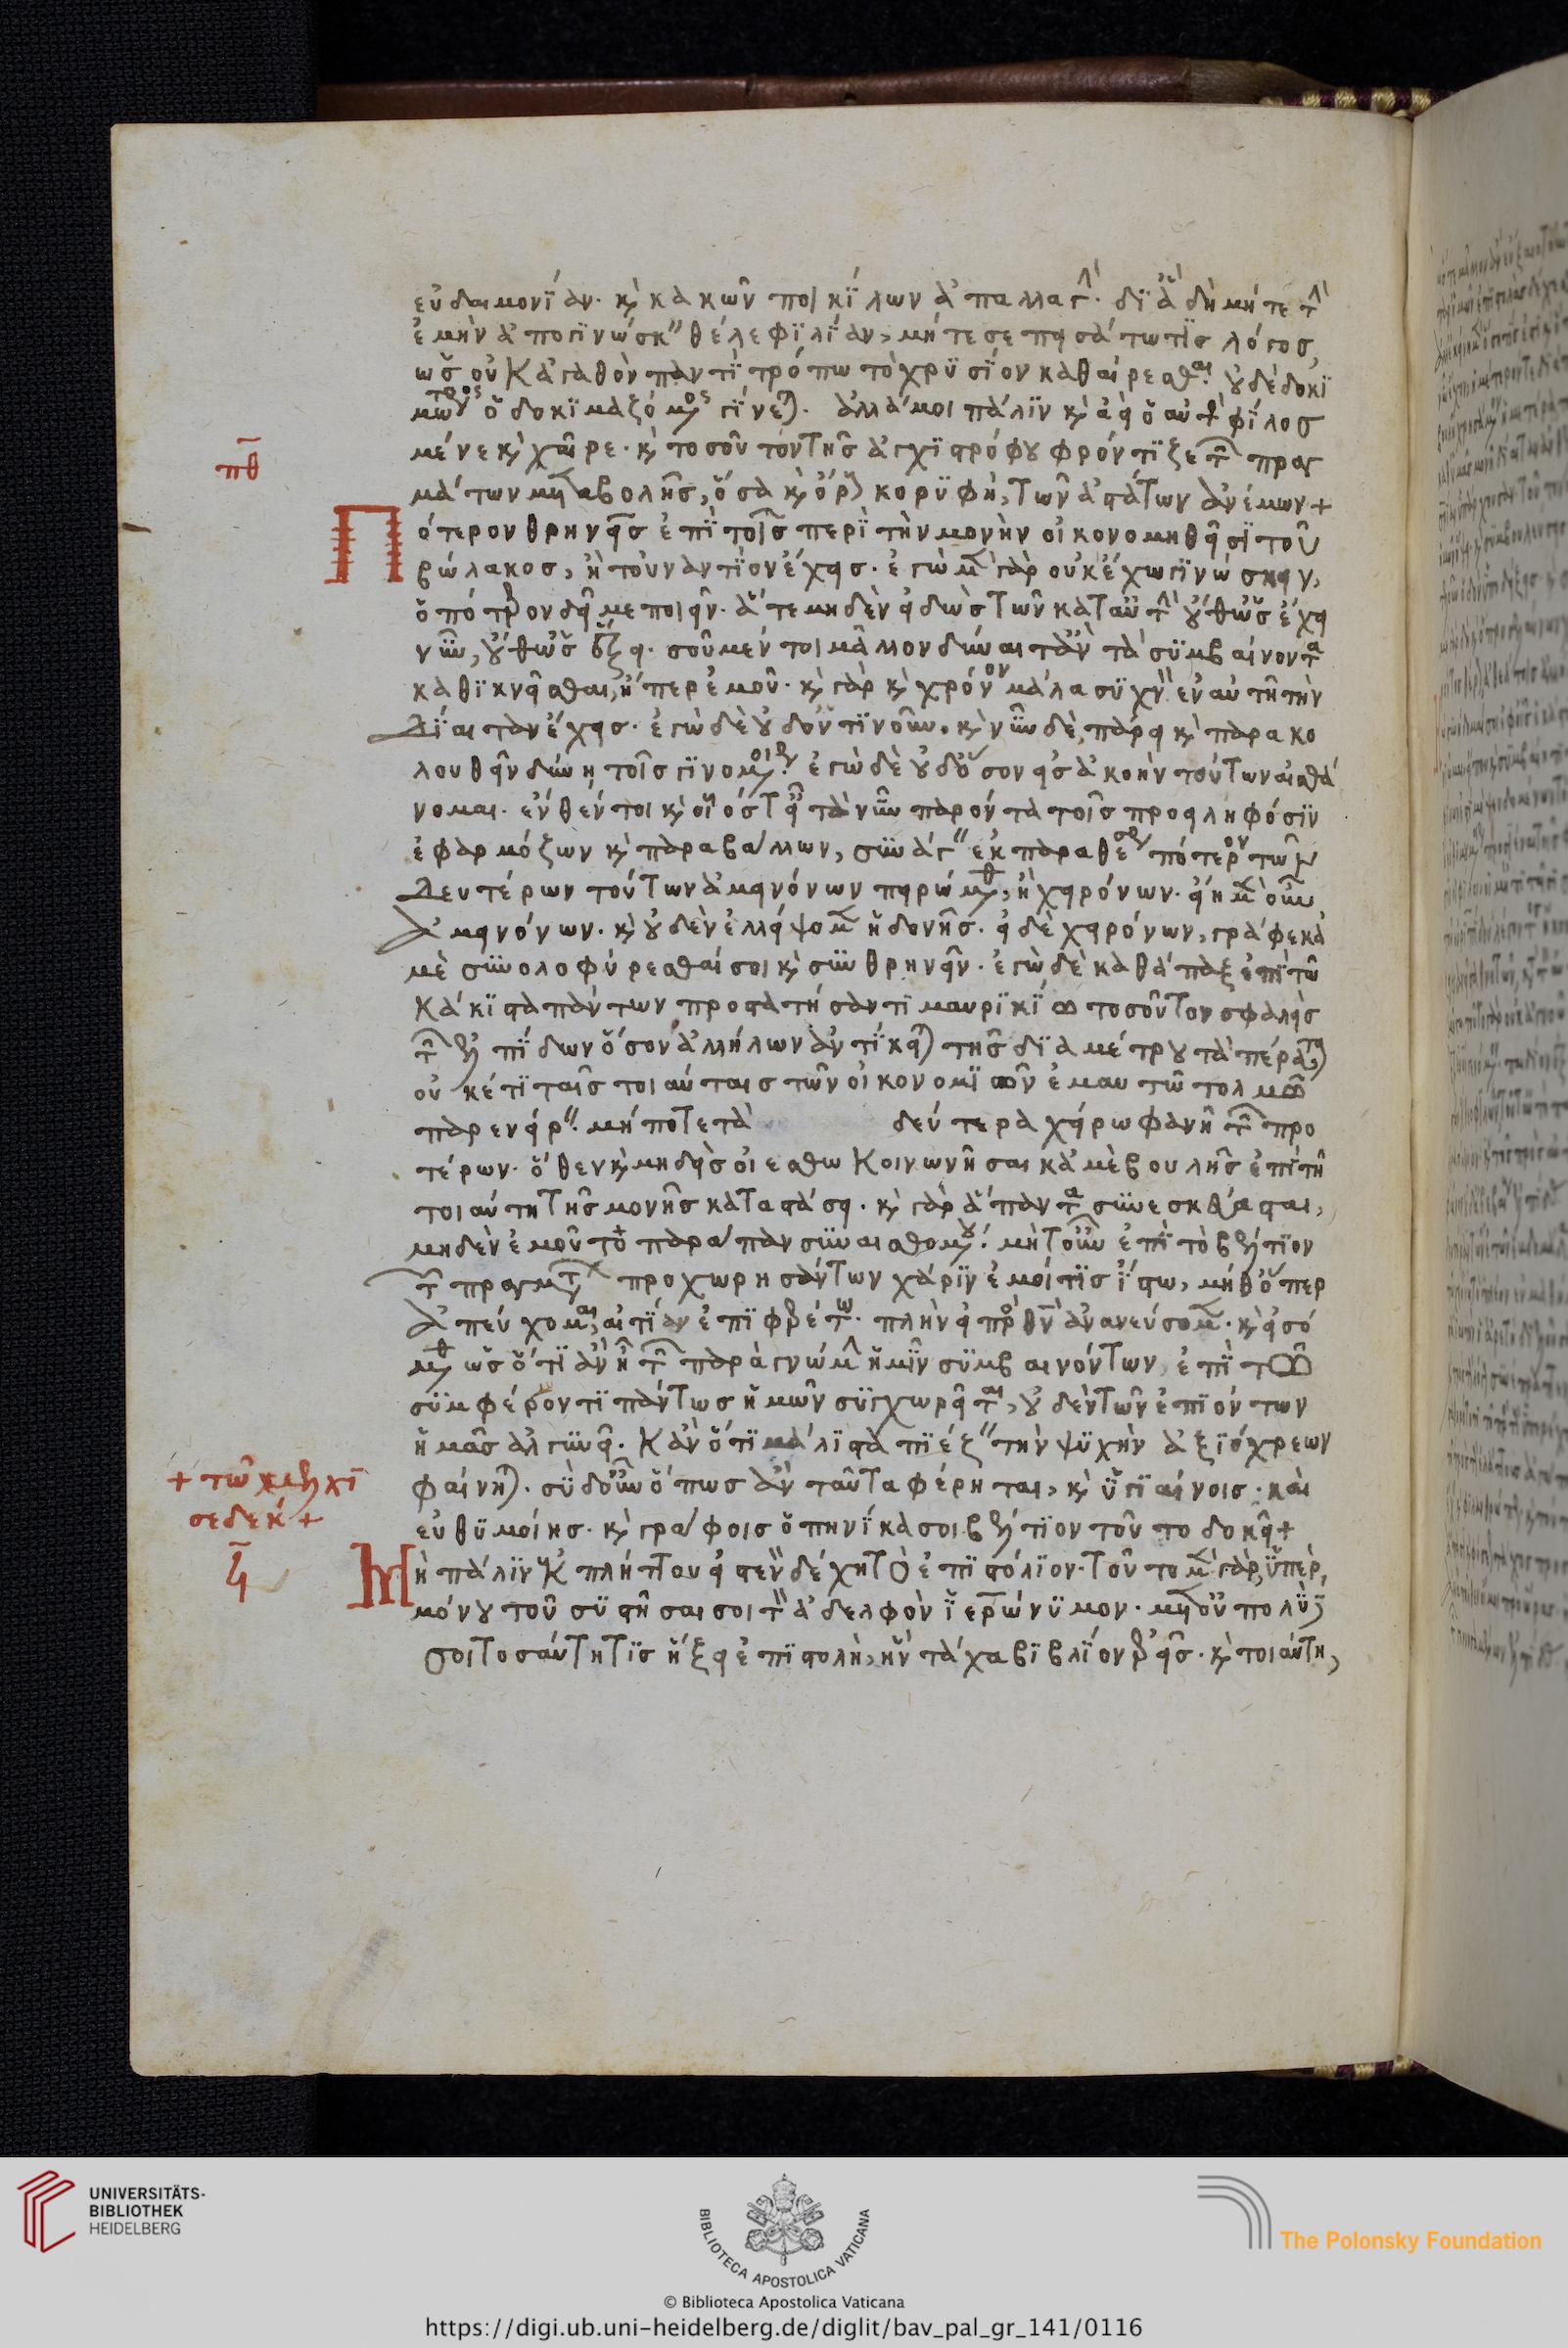 εὐδαιμονίαν. κ̀ κακῶν ποικίλων ἀπαλλαγ. διὰ δὴ μήτε τ̀
ἐμὴν ἀπογινώσκειν θέλε φιλίαν, μήτε σε πεισάτω τὶς λόγος,
ὡς οὐκ ἀγαθὸν παντὶ τρόπω τὸ χρυσίον καθαίρεσθαι. οὐδὲ δοκι
μώτερος ὁ δοκιμαζόμενος γίνεται. ἀλλά μοι πάλιν κ̀ ἀεὶ ὁ αὐτὸς φίλος
μένε κ̀ χαῖρε. κ̀ τοσοῦτον τῆς ἀγχιστρόφου φρόντιζε τῶν πραγ
μάτων μεταβολῆς, ὅσα κ̀ ὀρῶν κορυφὴ, τῶν ἀστάτων ἀνέμων +
πθ
Πότερον θρηνεῖς ἐπὶ τοῖς περὶ τὴν μονὴν οἰκονομηθεῖσι τοῦ
βώλακος, ἢ τοὐναντίον ἔχεις. ἐγὼ μὲν γὰρ οὐκ ἔχω γινώσκειν,
ὁπότερον δεῖ με ποιεῖν. ἅτε μηδὲν εἰδὼς τῶν κατ' αὐτὴν οὔθ' ὡς ἔχει
νῦν, οὔθ' ὡς ἕξει. σοῦ μέν τοι μᾶλλον δύναιτ' ἂν τὰ συμβαίνοντα
καθικνεῖσθαι, ἤπερ ἐμοῦ. κ̀ γὰρ κ̀ χρόνον μάλα συχνὸν ἐν αὐτῆ τὴν
δίαιταν ἔχεις. ἐγὼ δὲ οὐδ' ὅντινοῦν. κ̀ νῦν δὲ πάρει κ̀ παρακο
λουθεῖν δύνη τοῖς γινομένοις. ἐγὼ δὲ οὐδ' ὅσον εἰς ἀκοὴν τούτων αἰσθά
νομαι. ἐνθέν τοι κ̀ οἷός τ' εἶ τὰ νῦν παρόντα τοῖς προειληφόσιν
ἐφαρμόζων κ̀ παραβάλλων, συνάγειν ἐκ παραθέσεως πότερον τῶν
δευτέρων τούτων ἀμεινόνων πειρώμεθα, ἢ χειρόνων. εἰ ἢ μὲν οὖν
ἀμεινόνων. κ̀ οὐδὲν ἐλλείψομεν ἡδονῆς. εἰ δὲ χειρόνων, γράφε κἀ
μὲ συνολοφύρεσθαί σοι κ̀ συνθρηνεῖν. ἐγὼ δὲ καθάπαξ ἐπὶ τῶ
κάκιστα πάντων προστατήσαντι μαυρικίω τοσοῦτον σφαλεὶς
τῶν ἐλπίδων ὅσον ἀλλήλων ἀντίκειται τῆς διαμέτρου τὰ πέρατα,
οὐκέτι ταῖς τοιαύταις τῶν οἰκονομιῶν ἐμαυτῶ τολμῶ
παρενείρειν. μήποτε τὰ δεύτερα χείρω φανῆ τῶν προ
τέρων. ὅθεν κ̀ μηδεὶς οἰέσθω κοινωνῆσαι κἀμὲ βουλῆς ἐπὶ τῆ
τοιαύτη τῆς μονῆς καταστάσει. κ̀ γὰρ ἅπαντα συνεσκεύασται,
μηδὲν ἐμοῦ τὸ παράπαν συναισθομένου. μήτ' οὖν ἐπὶ τὸ βέλτιον
τῶν πραγμάτων προχωρησάντων χάριν ἐμοί τις ἴστω, μήθ' ὅπερ
ἀπεύχομαι, αἰτίαν ἐπιφερέτω. πλὴν εἰς πρόσθεν ἀνανεύσομεν. κ̀ εἰσό
μεθα ὡς ὅτι ἂν ἦ τῶν παρὰ γνώμην ἡμῖν συμβαινόντων ἐπὶ τῶ
συμφέροντι πάντως ἡμῶν συγχωρεῖται, οὐδὲν τῶν ἐπιόντων
ἡμᾶς ἀλγυνεῖ. κἂν ὅτι μάλιστα πιέζειν τὴν ψυχὴν ἀξιόχρεων
φαίνηται. σὺ δ' οὖν ὅπως ἂν ταῦτα φέρηται, κ̀ ὑγιαίνοις. καὶ
εὐθυμοίης. κ̀ γράφοις ὁπηνίκα σοι βέλτιον τοῦτο δοκεῖ +
+ τῶ μελχι
σεδεκ +
ϟ
Μὴ πάλιν ἐκπλήττου εἰ στενὸν δέχη τὸ ἐπιστόλιον. τοῦτο μὲν γὰρ, ὑπὲρ,
μόνου τοῦ συστῆσαι σοι τὸν ἀδελφὸν ἱερώνυμον. μετ' οὐ πολὺ δέ
σοι τοσαύτη τις ἥξει ἐπιστολὴ, ἣν τάχα βιβλίον ἐρεῖς. κ̀ τοιαύτη,
UNIVERSITÄTS-
BIBLIOTHEK
HEIDELBERG
BIBLIOTECA APOSTOLICA VATICANA
The Polonsky Foundation
© Biblioteca Apostolica Vaticana
https://digi.ub.uni-heidelberg.de/diglit/bav_pal_gr_141/0116